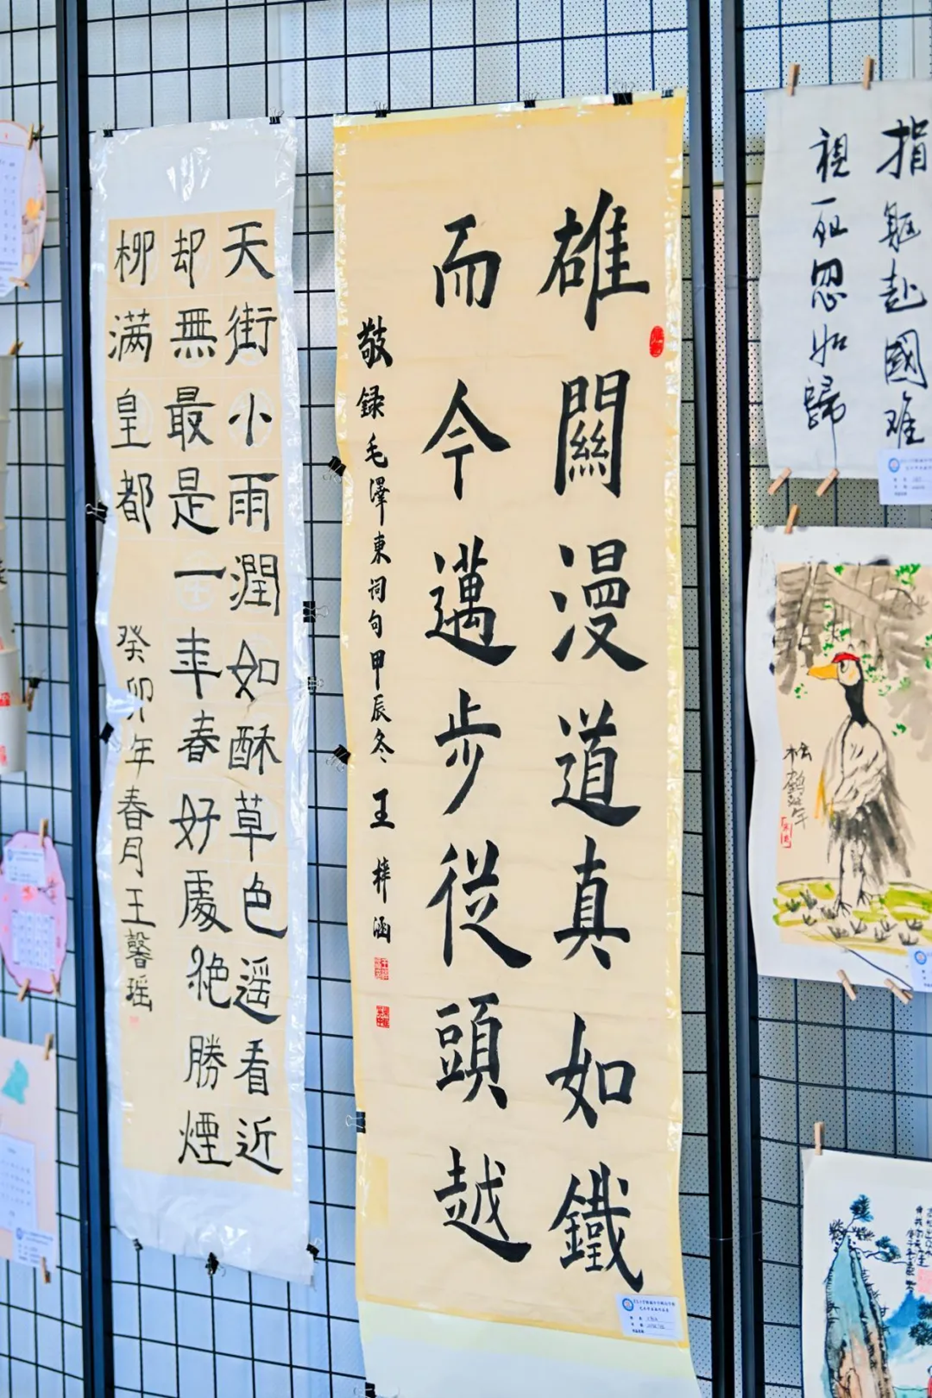 捐軀赴國难
視死忽如歸
雄關漫道真如鐵
而今邁步從頭越
敬録毛澤東词句甲辰冬王梓涵
天街小雨潤如酥草色遥看近
却無最是一年春好處絶勝煙
柳满皇都
癸卯年春月王馨瑶
松鹤延年